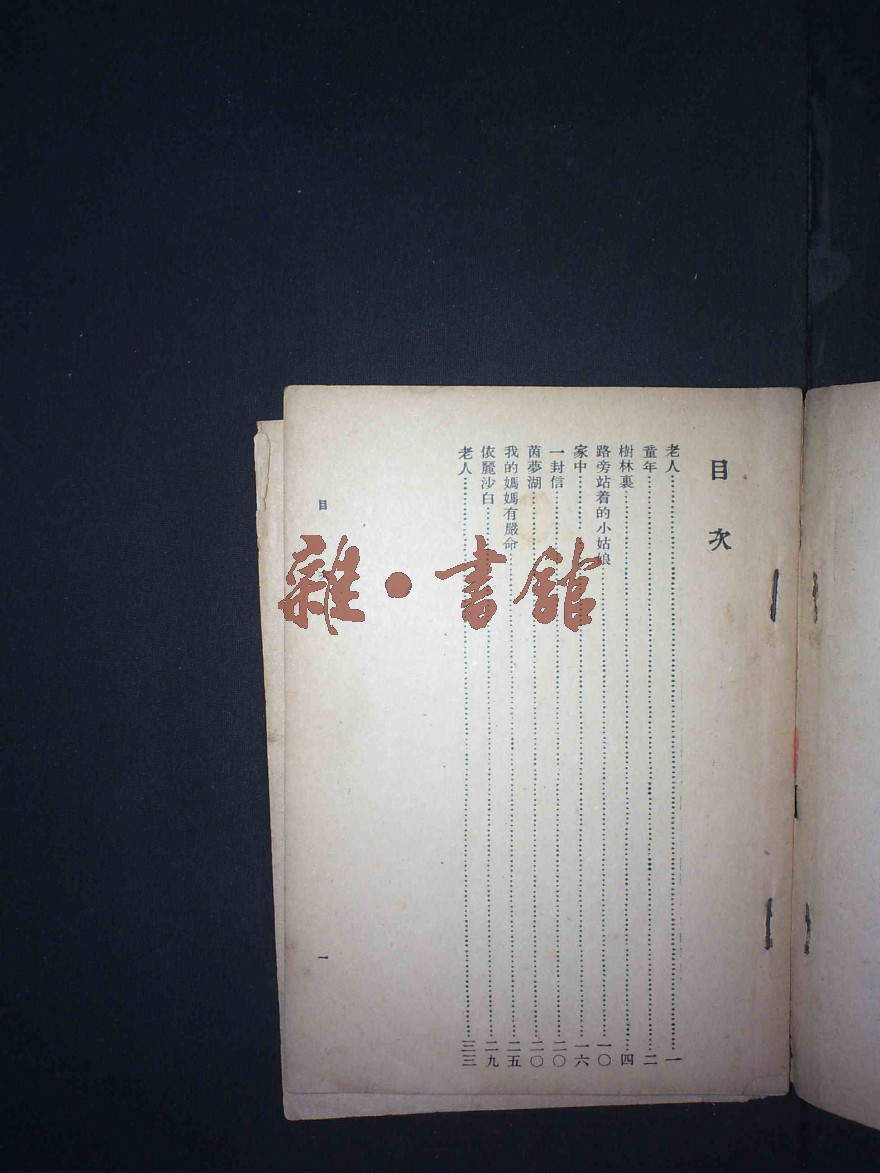 目次
老人……一
童年……二
樹林裏……四
路旁站着的小姑娘……一〇
家中……一六
一封信……二〇
茵夢湖……二〇
我的媽媽有嚴命……二五
依麗沙白……二九
老人……三三
目
一
雜・書館